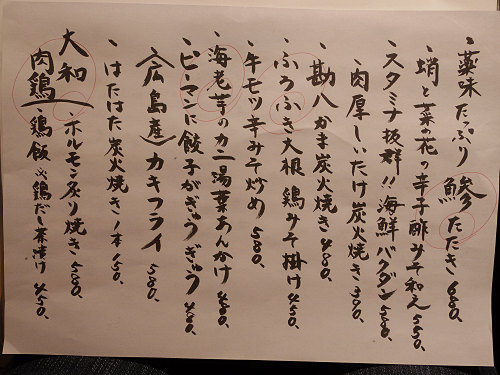 ・薬味たっぷり鰺たたき 680、
・蛸と菜の花の辛子酢みそ和え 550、
・スタミナ抜群!!海鮮バクダン 580、
・肉厚しいたけ炭火焼き 390、
・勘八かま炭火焼き 480、
・ふろふき大根 鶏みそ掛け 450、
・牛モツ辛みそ炒め 580、
・海老芋のカニ湯葉あんかけ 480、
・ピーマンに餃子がぎゅうぎゅう 480、
(広島産)カキフライ 580、
・はたはた炭火焼き 1本 150、
大和肉鶏
・ホルモン炙り焼き 580、
・鶏飯 ※鶏だし茶漬け 450、